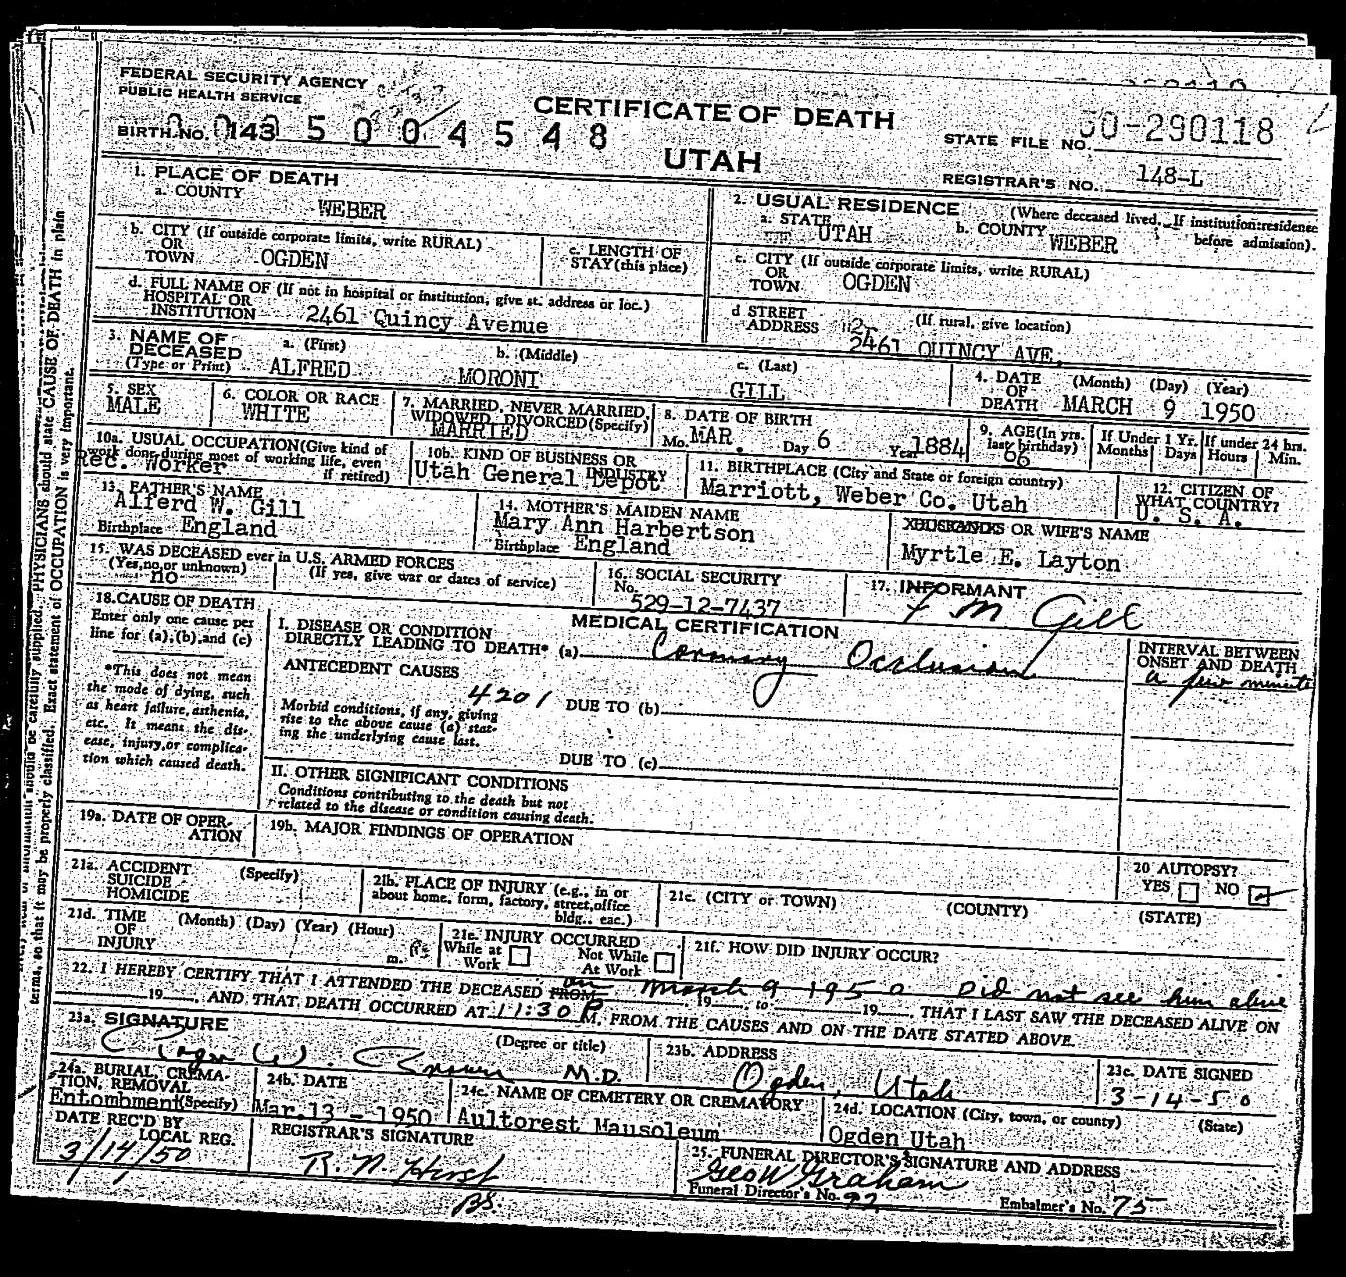 FEDERAL SECURITY AGENCY
PUBLIC HEALTH SERVICE
CERTIFICATE OF DEATH
UTAH
BIRTH NO. 143 5 0 0 4 5 4 8
STATE FILE NO. 50-290118
REGISTRAR'S NO. 148-L
1. PLACE OF DEATH
a. COUNTY
WEBER
2. USUAL RESIDENCE (Where deceased lived. If institution: residence before admission).
a. STATE UTAH b. COUNTY WEBER
b. CITY (If outside corporate limits, write RURAL)
OR
TOWN OGDEN
c. LENGTH OF
STAY (this place)
c. CITY (If outside corporate limits, write RURAL)
OR
TOWN OGDEN
d. FULL NAME OF (If not in hospital or institution, give st. address or loc.)
HOSPITAL OR
INSTITUTION 2461 Quincy Avenue
d STREET (If rural, give location)
ADDRESS
2461 QUINCY AVE.
3. NAME OF
DECEASED
(Type or Print)
a. (First) ALFRED
b. (Middle) MORONI
c. (Last) GILL
4. DATE (Month) (Day) (Year)
OF
DEATH MARCH 9 1950
5. SEX
MALE
6. COLOR OR RACE
WHITE
7. MARRIED, NEVER MARRIED,
WIDOWED, DIVORCED (Specify)
MARRIED
8. DATE OF BIRTH
Mo. MAR. Day 6 Year 1884
9. AGE (In yrs.
last birthday)
66
If Under 1 Yr.
Months Days
If under 24 hrs.
Hours Min.
10a. USUAL OCCUPATION (Give kind of
work done during most of working life, even
if retired)
Rec. Worker
10b. KIND OF BUSINESS OR
INDUSTRY
Utah General Depot
11. BIRTHPLACE (City and State or foreign country)
Marriott, Weber Co. Utah
12. CITIZEN OF
WHAT COUNTRY?
U. S. A.
13. FATHER'S NAME
Alferd W. Gill
Birthplace England
14. MOTHER'S MAIDEN NAME
Mary Ann Harbertson
Birthplace England
OR WIFE'S NAME
Myrtle E. Layton
15. WAS DECEASED ever in U.S. ARMED FORCES
(Yes, no, or unknown) (If yes, give war or dates of service)
no
16. SOCIAL SECURITY
No.
529-12-7437
17. INFORMANT
F M Gill
18. CAUSE OF DEATH
Enter only one cause per
line for (a), (b), and (c)
*This does not mean
the mode of dying, such
as heart failure, asthenia,
etc. It means the dis-
ease, injury, or complica-
tion which caused death.
MEDICAL CERTIFICATION
I. DISEASE OR CONDITION
DIRECTLY LEADING TO DEATH* (a) Coronary Occlusion
INTERVAL BETWEEN
ONSET AND DEATH
a few minutes
ANTECEDENT CAUSES
4201
Morbid conditions, if any, giving
rise to the above cause (a) stat-
ing the underlying cause last.
DUE TO (b)
DUE TO (c)
II. OTHER SIGNIFICANT CONDITIONS
Conditions contributing to the death but not
related to the disease or condition causing death.
19a. DATE OF OPER-
ATION
19b. MAJOR FINDINGS OF OPERATION
20 AUTOPSY?
YES NO
21a. ACCIDENT (Specify)
SUICIDE
HOMICIDE
21b. PLACE OF INJURY (e.g., in or
about home, form, factory, street, office
bldg., eac.)
21c. (CITY or TOWN) (COUNTY) (STATE)
21d. TIME (Month) (Day) (Year) (Hour)
OF
INJURY m.
21e. INJURY OCCURRED
While at
Work
Not While
At Work
21f. HOW DID INJURY OCCUR?
22. I HEREBY CERTIFY THAT I ATTENDED THE DECEASED FROM on March 9 1950 Did not see him alive
19 to
19 , THAT I LAST SAW THE DECEASED ALIVE ON
19 , AND THAT DEATH OCCURRED AT 11:30 P M. FROM THE CAUSES AND ON THE DATE STATED ABOVE.
23a. SIGNATURE (Degree or title)
M.D.
23b. ADDRESS
Ogden, Utah
23c. DATE SIGNED
3-14-50
24a. BURIAL, CREMA-
TION, REMOVAL
(Specify)
Entombment
24b. DATE
Mar. 13 - 1950
24c. NAME OF CEMETERY OR CREMATORY
Aultorest Mausoleum
24d. LOCATION (City, town, or county) (State)
Ogden Utah
DATE REC'D BY
LOCAL REG.
3/14/50
REGISTRAR'S SIGNATURE
25. FUNERAL DIRECTOR'S SIGNATURE AND ADDRESS
Geo W Graham
Funeral Director's No. 92
Embalmer's No. 75